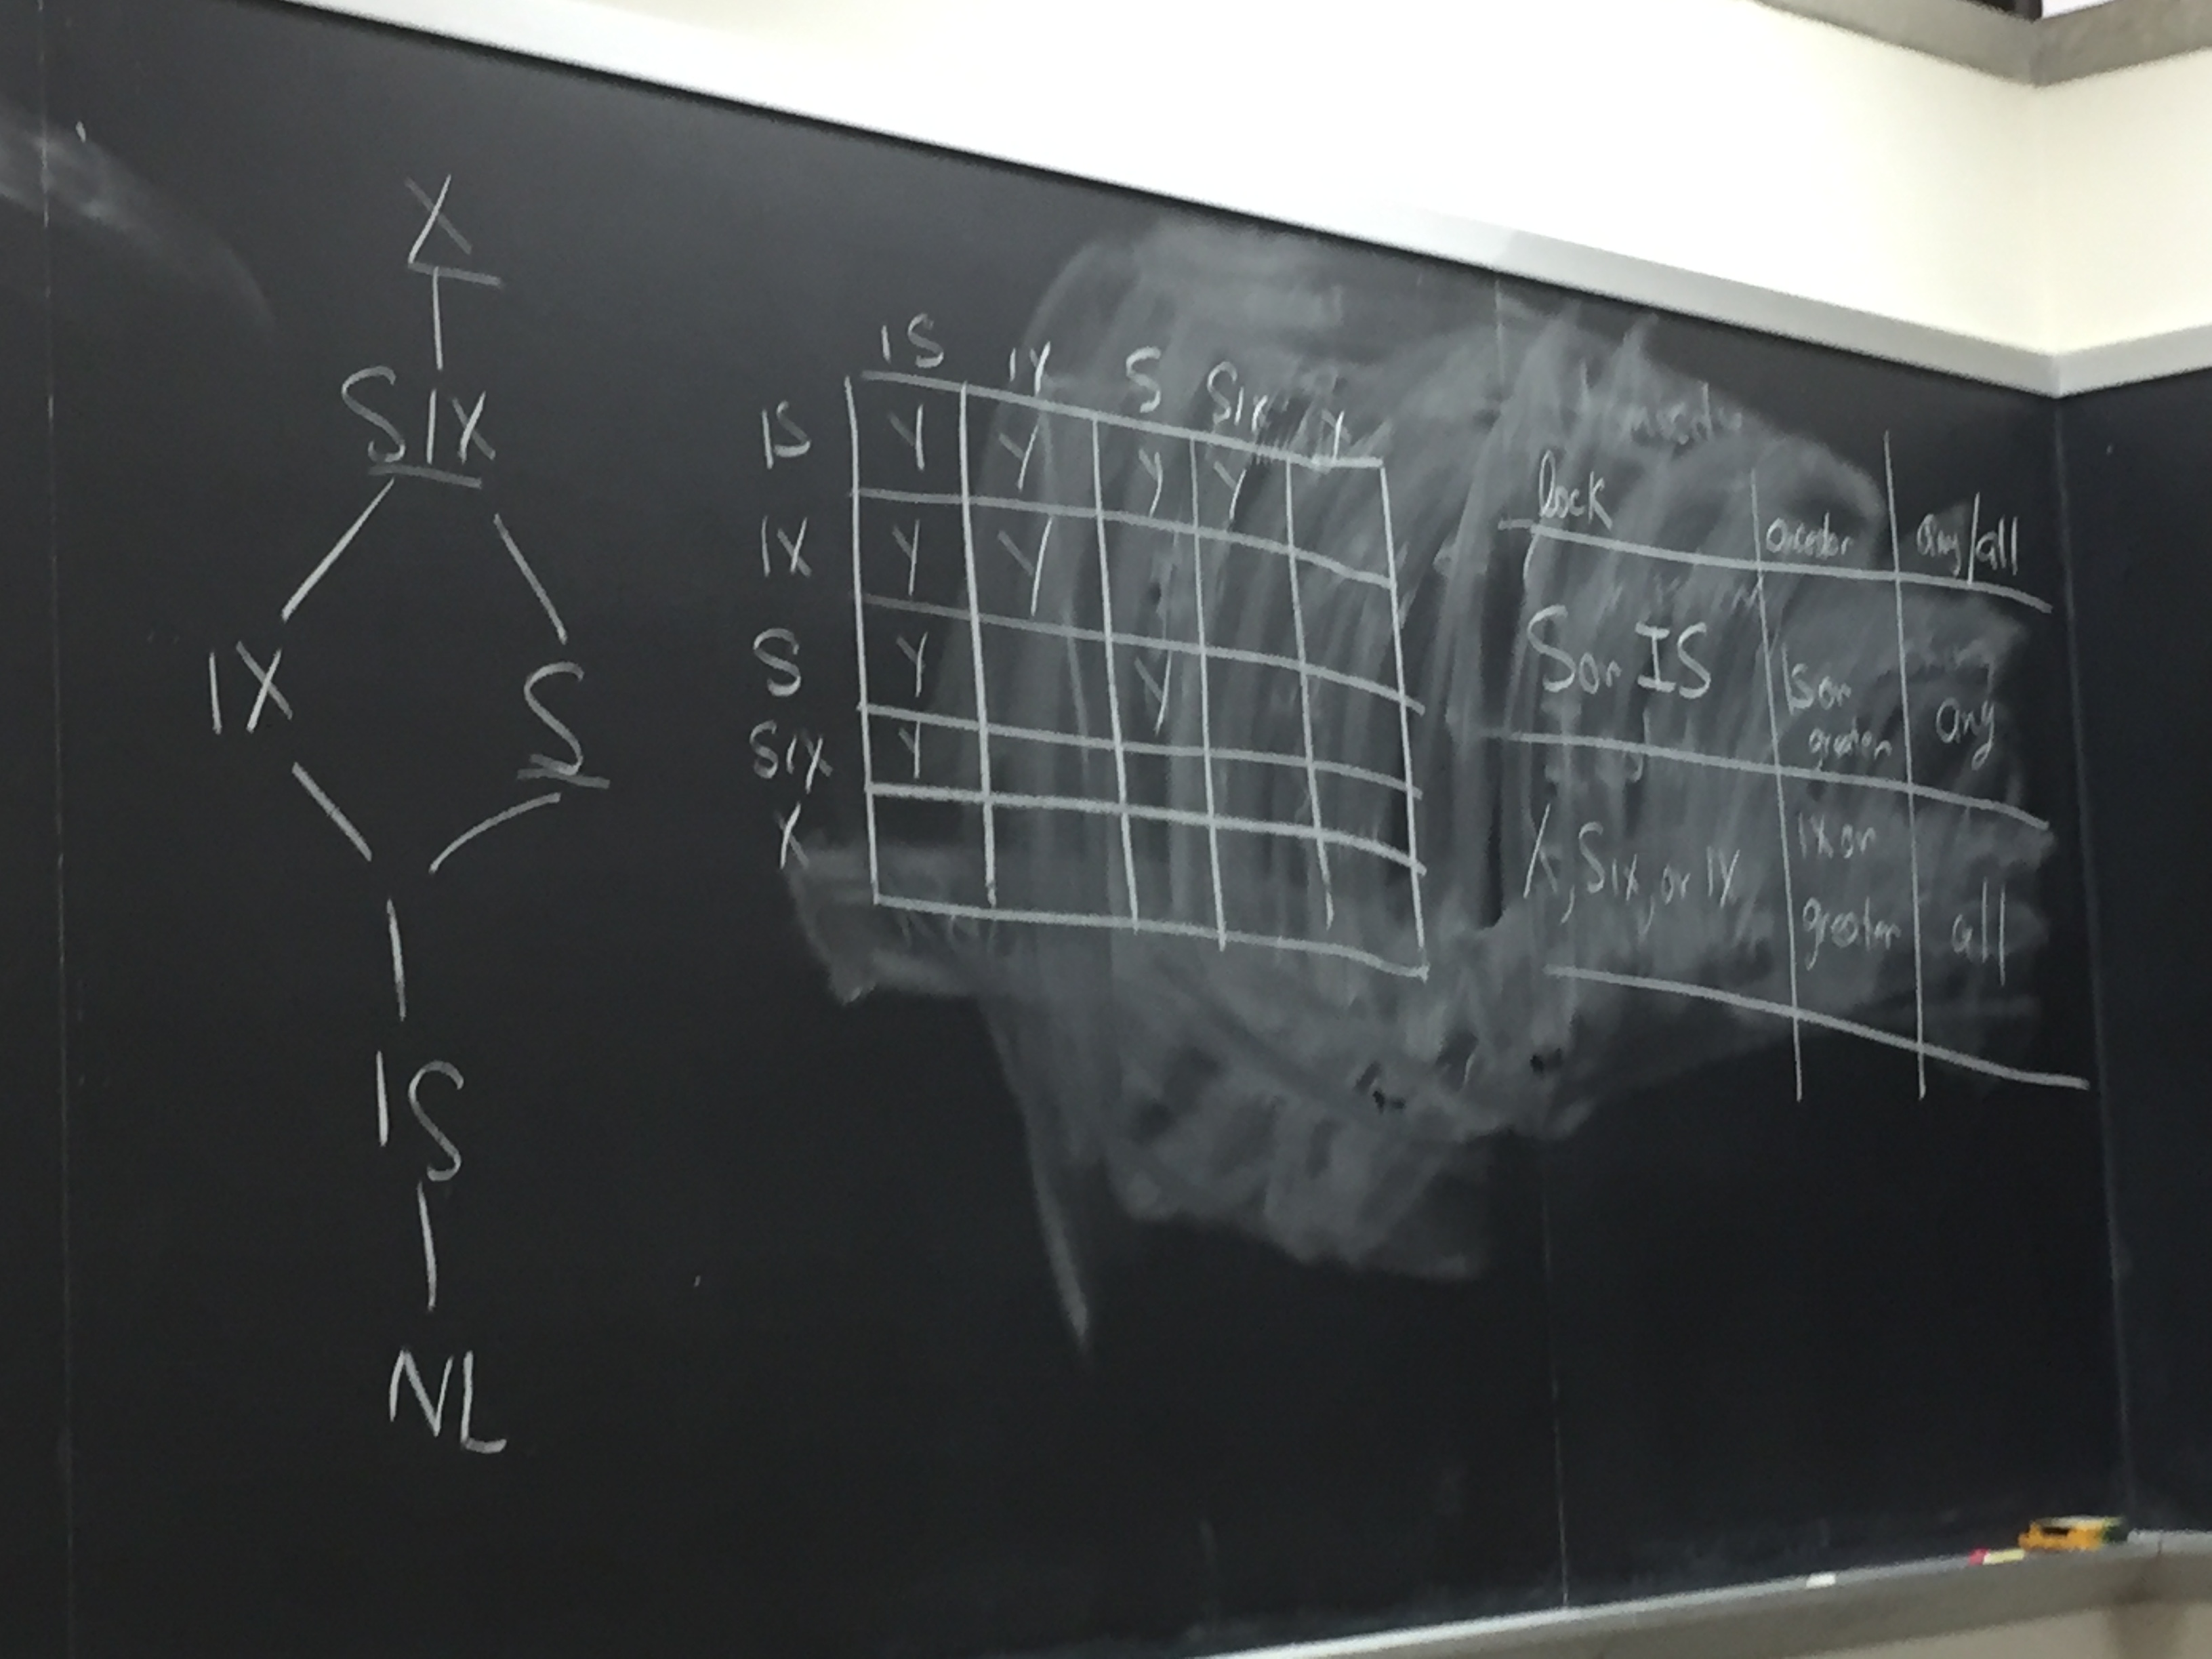 X
SIX
IX S
IS
NL
IS IX S SIX X
IS Y Y Y Y
IX Y Y
S Y Y
SIX Y
X
lock ancestor any/all
S or IS IS or greater any
X, SIX, or IX IX or greater all